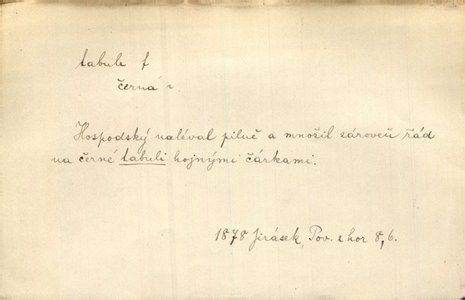 tabule f
černá ~
Hospodský naléval pilně a množil zároveň řád
na černé tabuli hojnými čárkami.
1878 Jirásek, Pov. z hor 8,6.